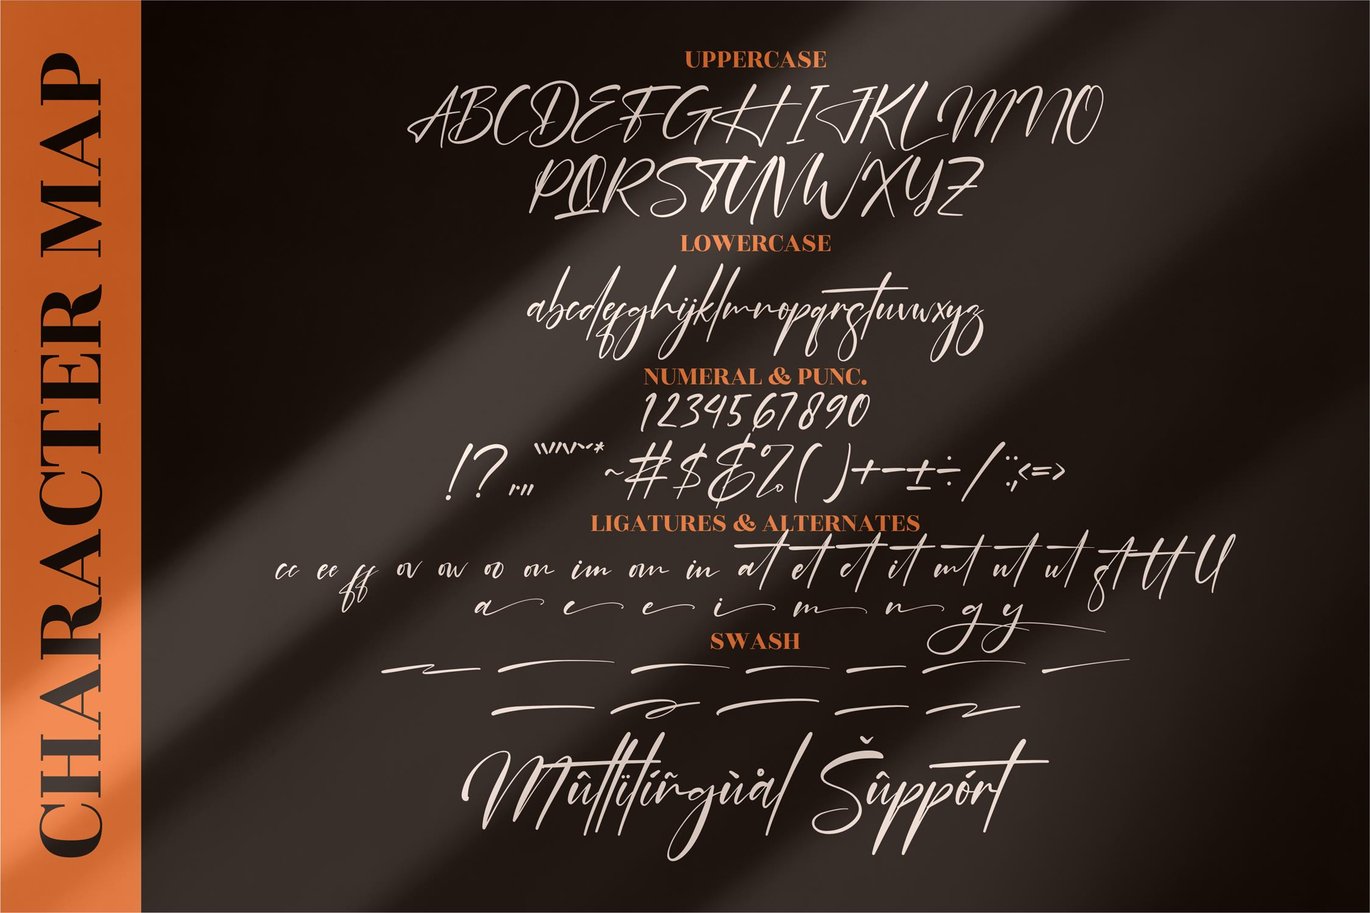 CHARACTER MAP
UPPERCASE
ABCDEFGHIJKLMNO
PQRSTUVWXYZ
LOWERCASE
abcdefghijklmnopqrstuvwxyz
NUMERAL & PUNC.
1234567890
!? ~#$&%()+-±÷/:;<=>
LIGATURES & ALTERNATES
cc ee ff ov ow oo on im om in at et ct it mt nt ut st tt ll
a c e i m n g y
SWASH
Mûltïlíñgùål Šûppórt